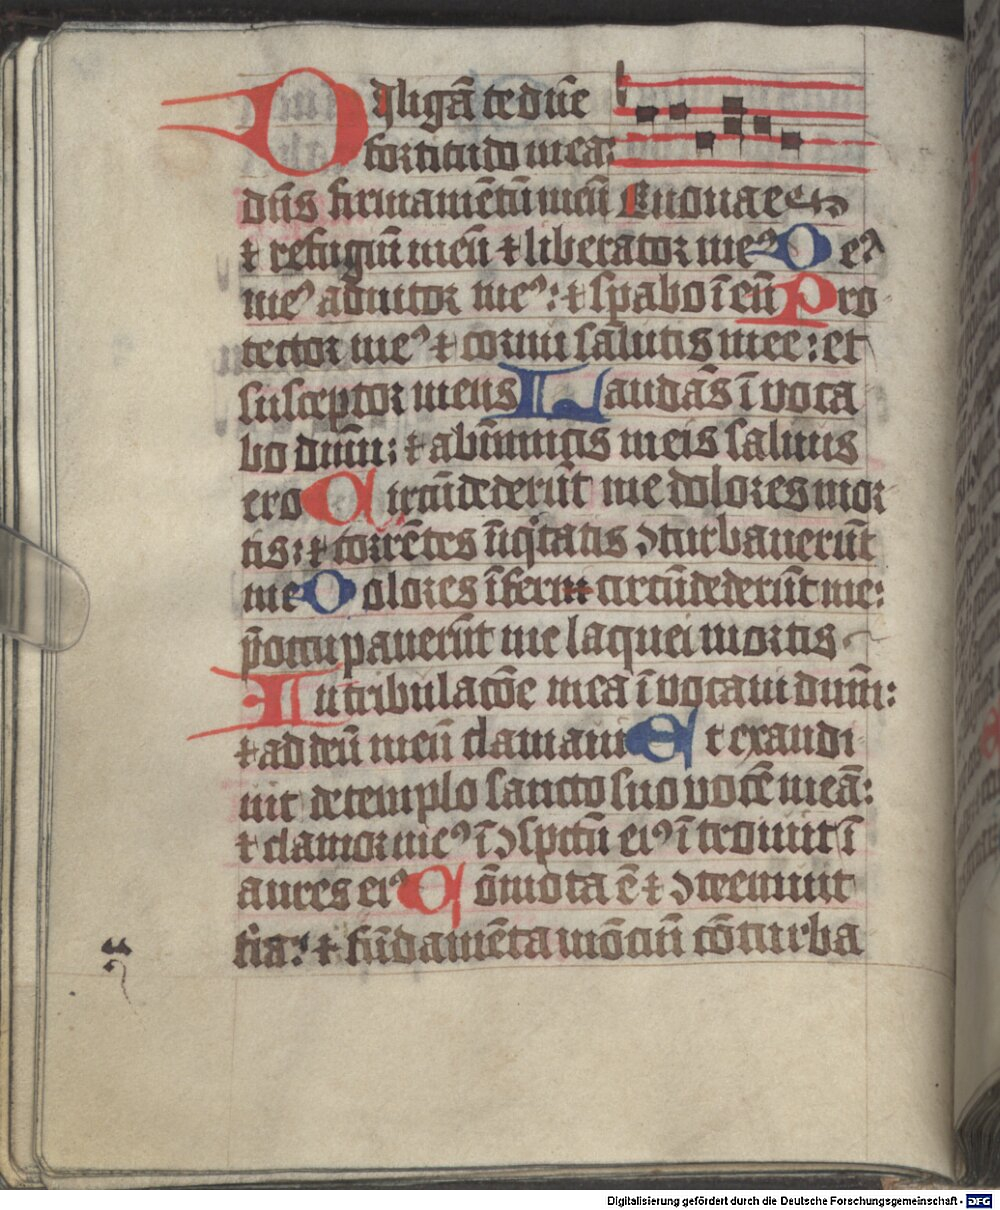 Diligā te dn̄e
fortitudo mea:
dn̄s firmamētū meū Euouae
⁊ refugiū meū ⁊ liberator meꝰ De⁹
meꝰ adiutor meꝰ: ⁊ sp̄abo ī eū Pro
tector meꝰ ⁊ cornu salutis mee: et
susceptor meus Laudās īuoca
bo dnm̄: ⁊ ab inimicis meis saluus
ero Circūdederūt me dolores mor
tis: ⁊ torrētes īiqͥtatis ꝯturbauerūt
me Dolores īferni circūdederūt me:
p̄occupauerūt me laquei mortis
In tribulacōe mea īuocaui dnm̄:
⁊ ad deū meū clamaui Et exaudi
uit de templo sancto suo vocē meā:
⁊ clamor meꝰ ī ꝯspc̄tu eiꝰ ītrouit ī
aures eiꝰ Cōmota ē ⁊ ꝯtremuit
t̄ra: ⁊ fūdamēta mōciū cōturba
Digitalisierung gefördert durch die Deutsche Forschungsgemeinschaft - DFG